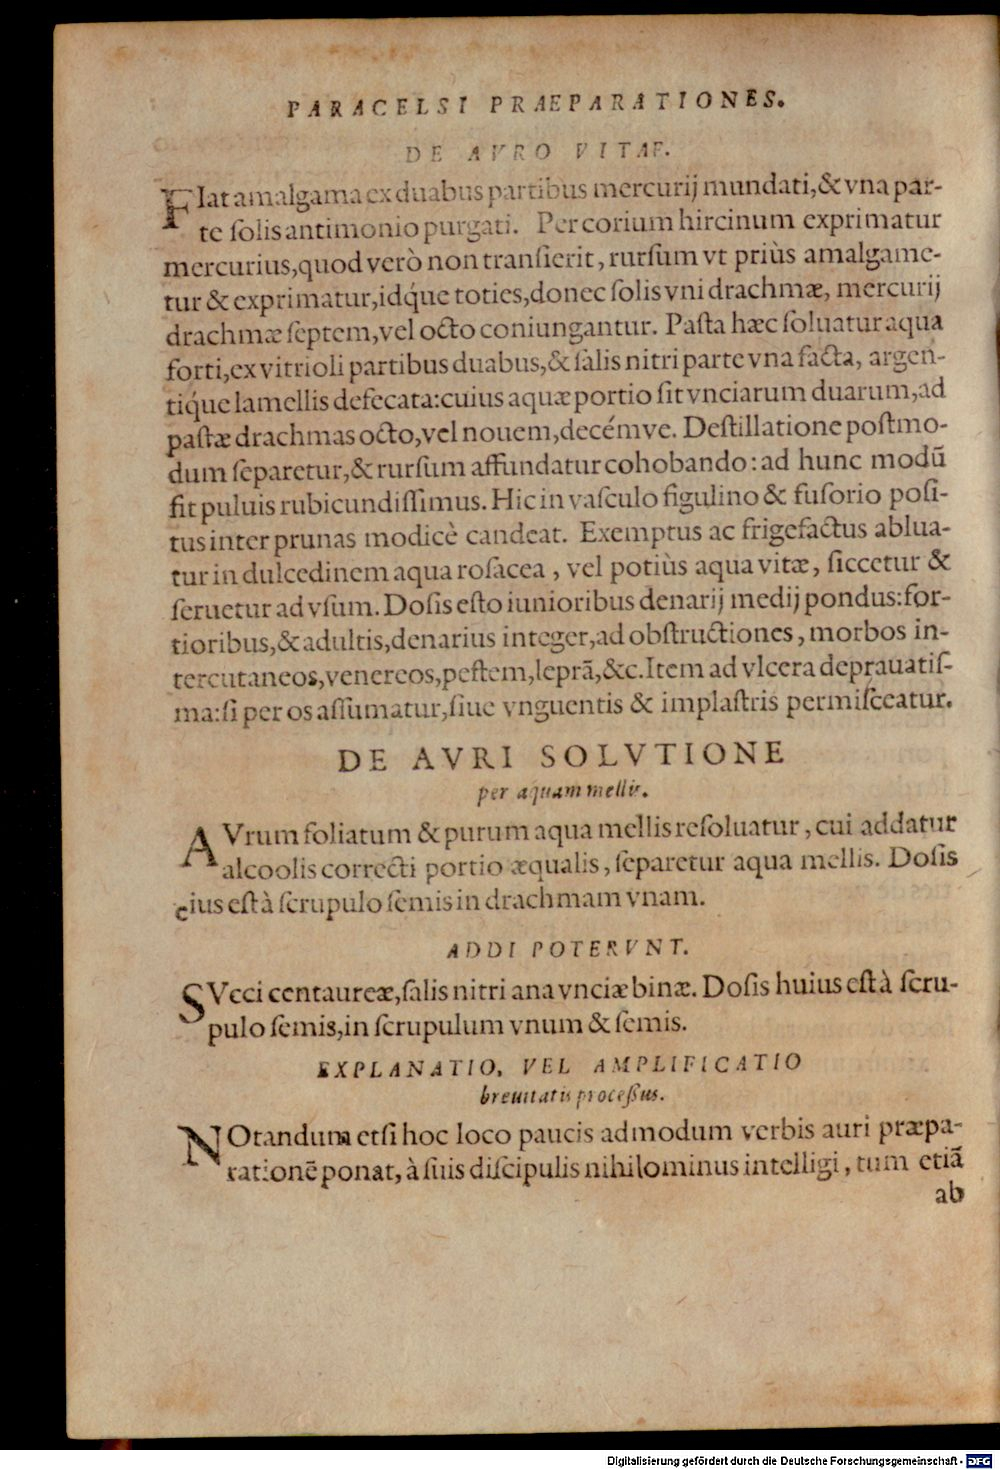 PARACELSI PRAEPARATIONES.
DE AVRO VITAE.
FIat amalgama ex duabus partibus mercurij mundati,& vna par-
te ſolis antimonio purgati. Per corium hircinum exprimatur
mercurius,quod verò non tranſierit, rurſum vt priùs amalgame-
tur & exprimatur,idq́ue toties,donec ſolis vni drachmæ, mercurij
drachmæ ſeptem,vel octo coniungantur. Paſta hæc ſoluatur aqua
forti,ex vitrioli partibus duabus,& ſalis nitri parte vna facta, argen-
tiq́ue lamellis defecata:cuius aquæ portio ſit vnciarum duarum,ad
paſtæ drachmas octo,vel nouem,decémve. Deſtillatione poſtmo-
dum ſeparetur,& rurſum affundatur cohobando: ad hunc modū
fit puluis rubicundiſſimus. Hic in vaſculo figulino & fuſorio poſi-
tus inter prunas modicè candeat. Exemptus ac frigefactus ablua-
tur in dulcedinem aqua roſacea, vel potiùs aqua vitæ, ſiccetur &
ſeruetur ad vſum. Doſis eſto iunioribus denarij medij pondus:for-
tioribus,& adultis,denarius integer,ad obſtructiones, morbos in-
tercutaneos,venereos,peſtem,leprā,&c.Item ad vlcera deprauatiſ-
ma:ſi per os aſſumatur,ſiue vnguentis & implaſtris permiſceatur.
DE AVRI SOLVTIONE
per aquam mellis.
AVrum foliatum & purum aqua mellis reſoluatur, cui addatur
alcoolis correcti portio æqualis, ſeparetur aqua mellis. Doſis
eius eſt à ſcrupulo ſemis in drachmam vnam.
ADDI POTERVNT.
SVcci centaureæ,ſalis nitri ana vnciæ binæ. Doſis huius eſt à ſcru-
pulo ſemis,in ſcrupulum vnum & ſemis.
EXPLANATIO, VEL AMPLIFICATIO
breuitatis proceßus.
NOtandum etſi hoc loco paucis admodum verbis auri præpa-
rationē ponat, à ſuis diſcipulis nihilominus intelligi, tum etiā
ab
Digitalisierung gefördert durch die Deutsche Forschungsgemeinschaft - DFG